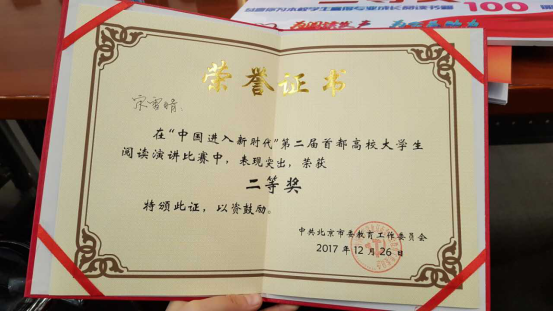 100
荣誉证书
宋雪晴:
在“中国进入新时代”第二届首都高校大学生
阅读演讲比赛中,表现突出,荣获
二等奖
特颁此证,以资鼓励。
中共北京市委教育工作委员会
2017年12月26日